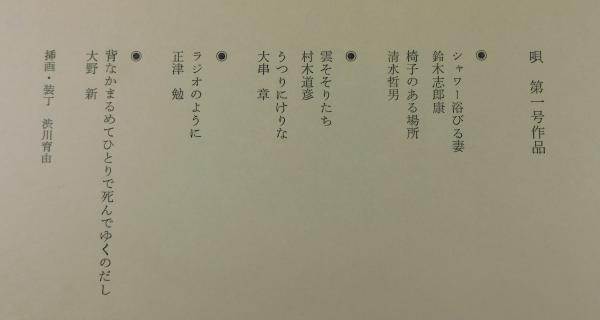 唄　第一号作品
◉
シャワー浴びる妻
鈴木志郎康
椅子のある場所
清水哲男
◉
雲そそりたち
村木道彦
うつりにけりな
大串　章
◉
ラジオのように
正津　勉
◉
背なかまるめてひとりで死んでゆくのだし
大野　新
挿画・装丁　渋川育由